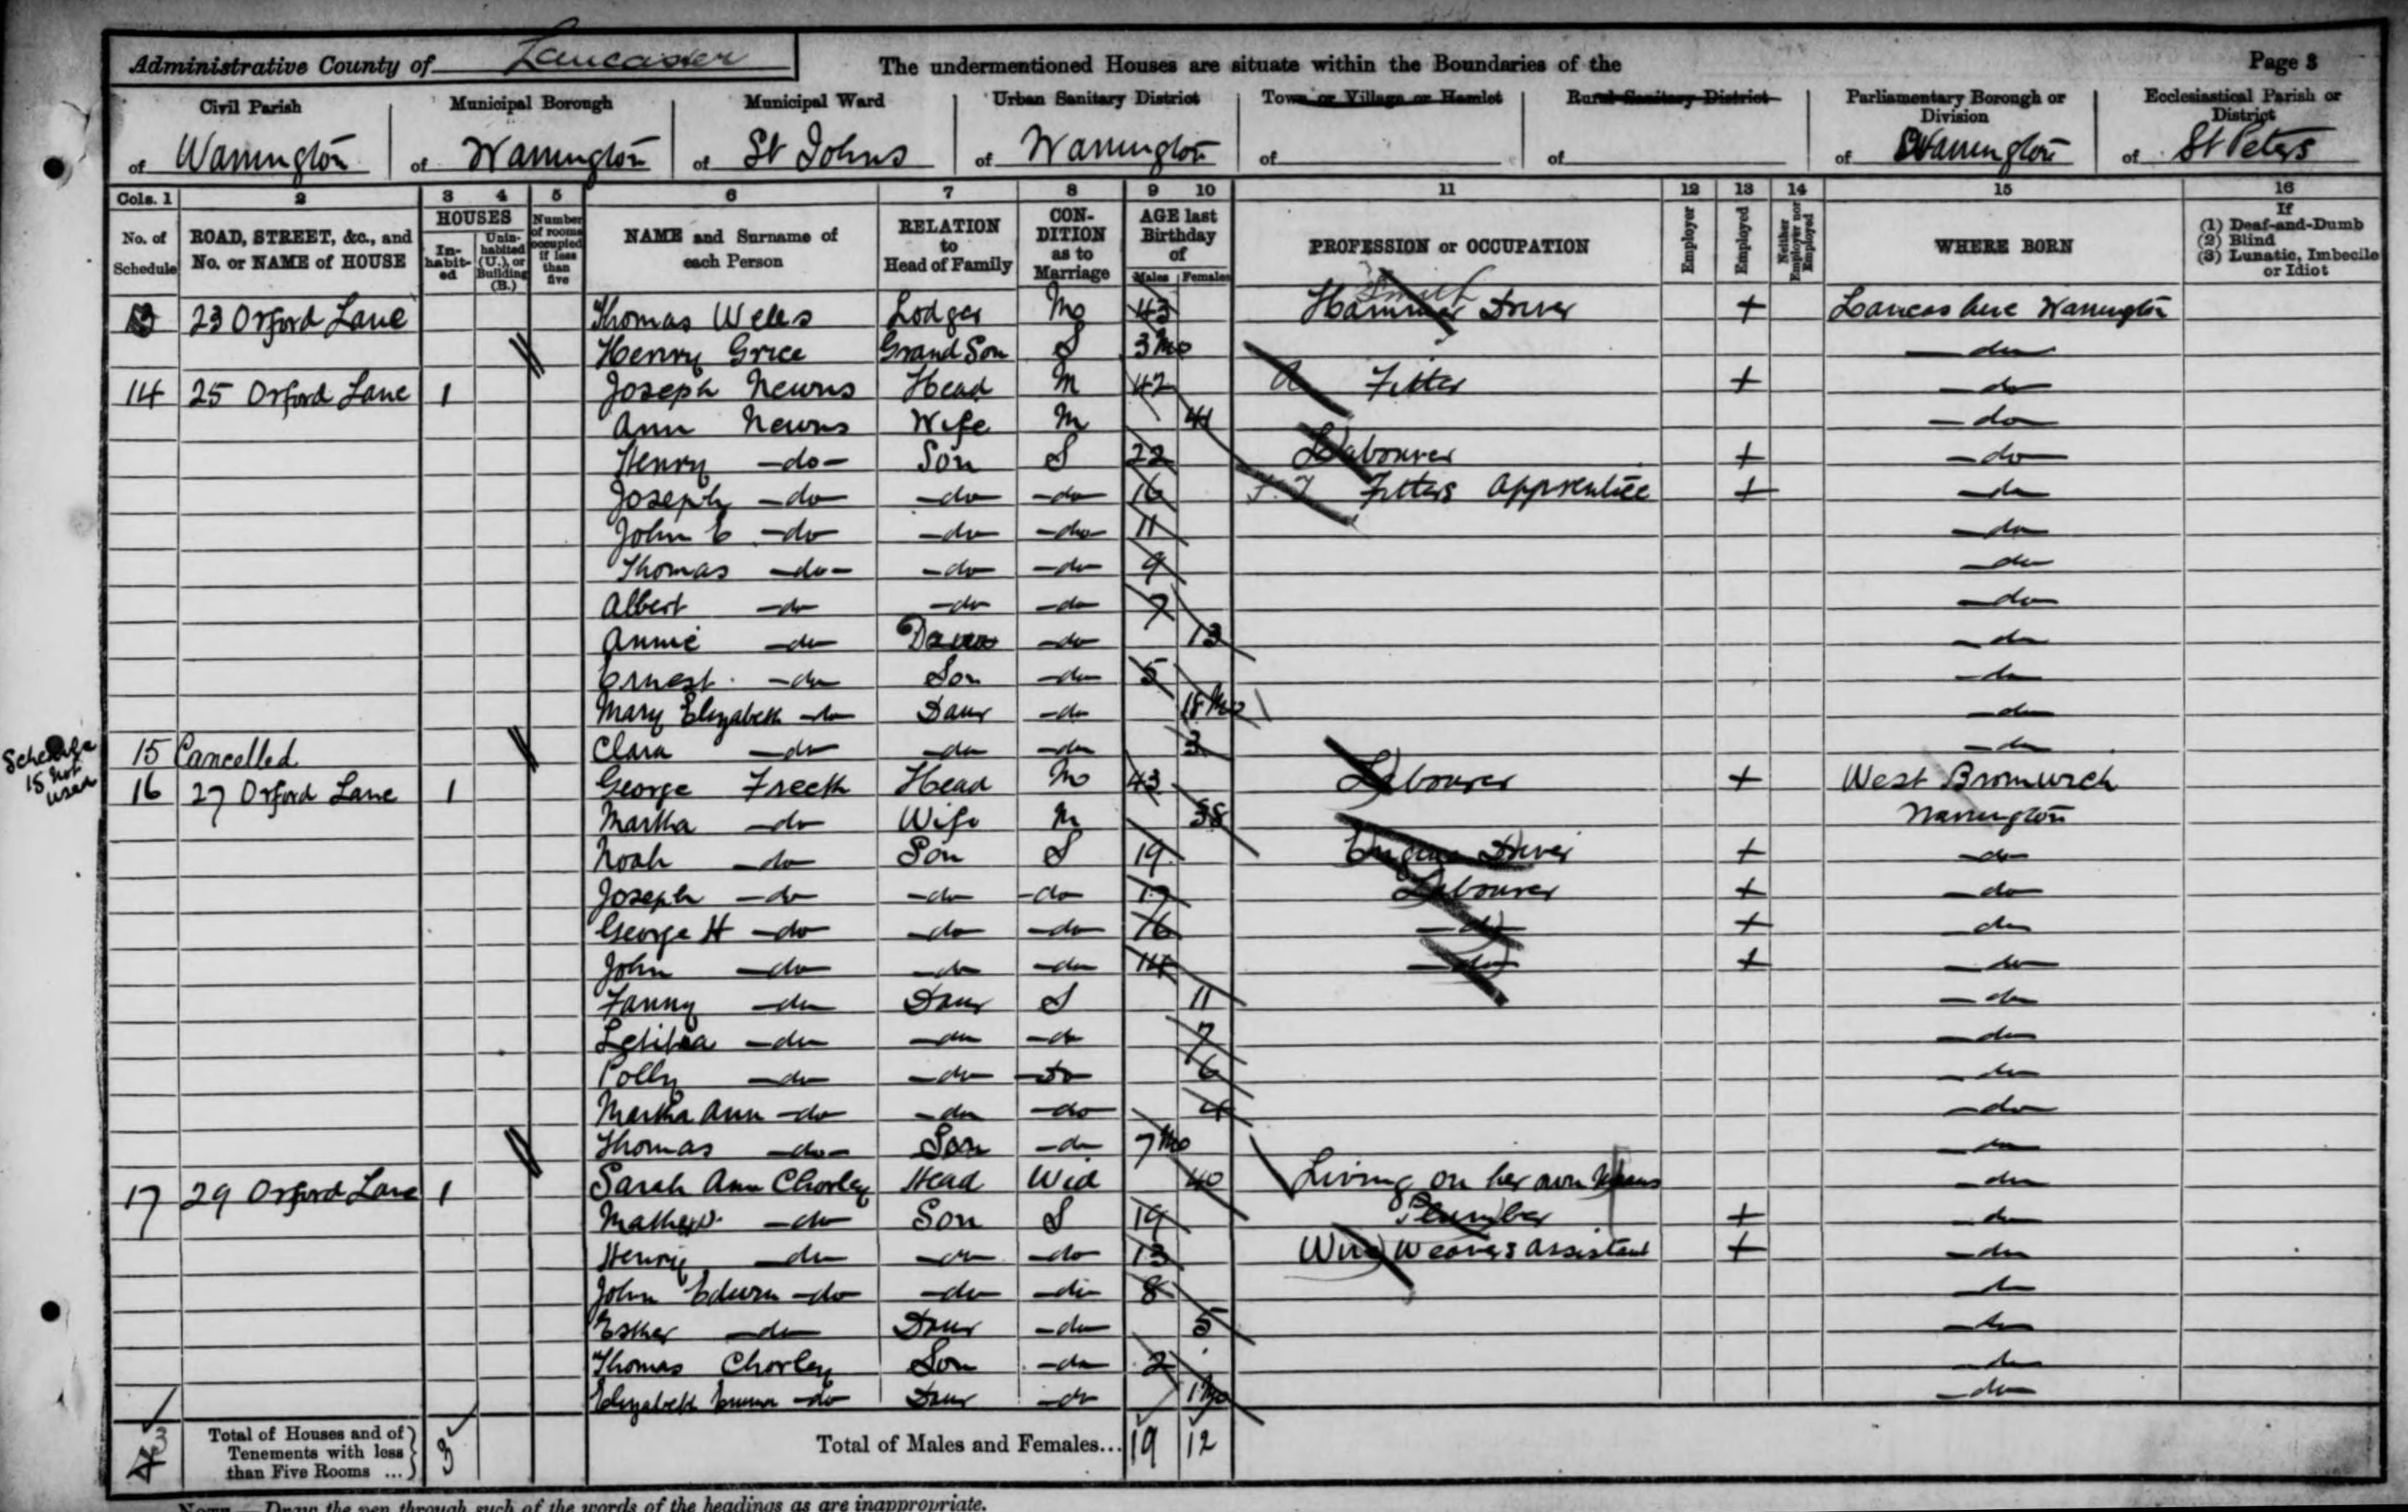 Administrative County of Lancaster The undermentioned Houses are situate within the Boundaries of the Page 3
Civil Parish Municipal Borough Municipal Ward Urban Sanitary District Town or Village or Hamlet Rural Sanitary District Parliamentary Borough or Division Ecclesiastical Parish or District
of Warrington of Warrington of St Johns of Warrington of of of Warrington of St Peters
Cols. 1 2 3 4 5 6 7 8 9 10 11 12 13 14 15 16
No. of Schedule ROAD, STREET, &c., and No. or NAME of HOUSE HOUSES In-habit-ed Unin-habited (U.), or Building (B.) Number of rooms occupied if less than five NAME and Surname of each Person RELATION to Head of Family CON-DITION as to Marriage AGE last Birthday of Males Females PROFESSION or OCCUPATION Employer Employed Neither Employer nor Employed WHERE BORN If (1) Deaf-and-Dumb (2) Blind (3) Lunatic, Imbecile or Idiot
Smith
13 23 Orford Lane Thomas Wells Lodger M 43 Hammer Driver + Lancashire Warrington
Henry Grice Grand Son S 3 Mo -do-
14 25 Orford Lane 1 Joseph Newns Head M 42 Fitter + -do-
Ann Newns Wife M 41 -do-
Henry -do- Son S 22 Labourer + -do-
Joseph -do- -do- -do- 16 Fitters Apprentice + -do-
John E -do- -do- -do- 11 -do-
Thomas -do- -do- -do- 9 -do-
Albert -do- -do- -do- 7 -do-
Annie -do- Daur -do- 13 -do-
Ernest -do- Son -do- 5 -do-
Mary Elizabeth -do- Daur -do- 18 Mo -do-
Schedule 15 not used
15 Cancelled Clara -do- -do- -do- 3 -do-
16 27 Orford Lane 1 George Freeth Head M 43 Labourer + West Bromwich
Martha -do- Wife M 38 Warrington
Noah -do- Son S 19 Engine Driver + -do-
Joseph -do- -do- -do- 17 Labourer + -do-
George H -do- -do- -do- 16 -do- + -do-
John -do- -do- -do- 14 -do- + -do-
Fanny -do- Daur S 11 -do-
Letitia -do- -do- -do- 7 -do-
Polly -do- -do- -do- 6 -do-
Martha Ann -do- -do- -do- 4 -do-
Thomas -do- Son -do- 7 Mo -do-
17 29 Orford Lane 1 Sarah Ann Chorley Head Wid 40 Living on her own Means -do-
Mathew -do- Son S 19 Plumber + -do-
Henry -do- -do- -do- 13 Wire Weavers Assistant + -do-
John Edwin -do- -do- -do- 8 -do-
Esther -do- Daur -do- 5 -do-
Thomas Chorley Son -do- 2 -do-
Elizabeth Emma -do- Daur -do- 1 Mo -do-
3 Total of Houses and of Tenements with less than Five Rooms ... 3 Total of Males and Females... 19 12
NOTE.—Draw the pen through such of the words of the headings as are inappropriate.